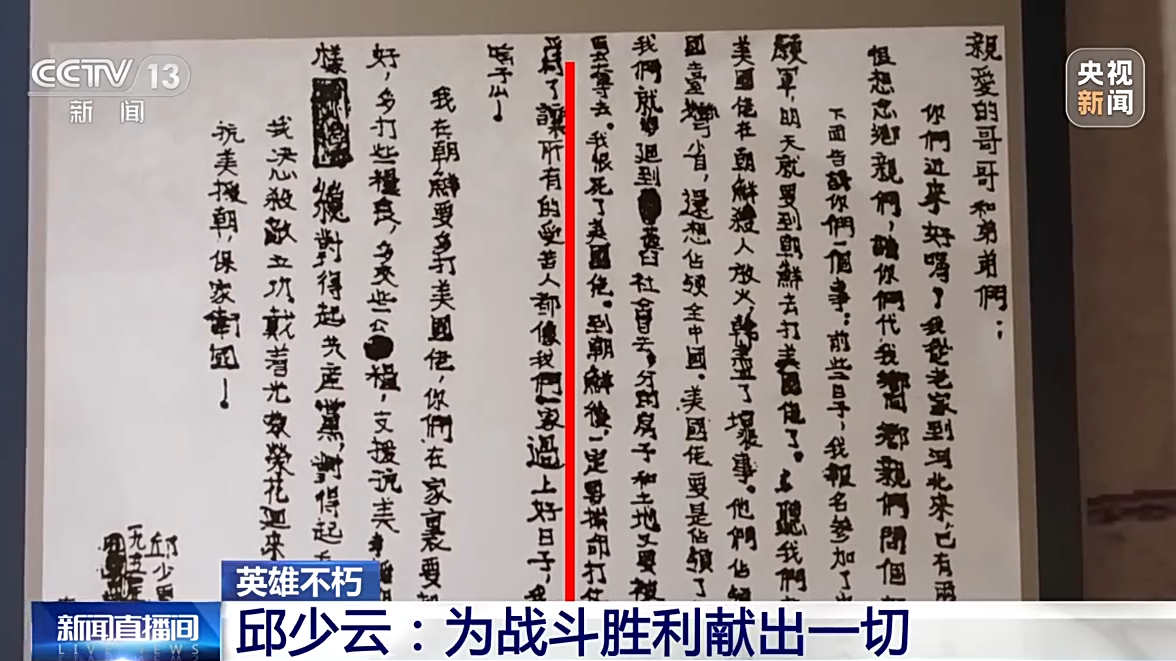 CCTV 13
新闻
央视
新闻
親愛的哥哥和弟弟們：
你們近來好嗎？我從老家到河北來，已有兩
但想念鄉親們，請你們代我向鄉親們問個
下面告訴你們一個事：前些日子，我報名參加了
願軍，明天就要到朝鮮去打美國佬了。聽我們
美國佬在朝鮮殺人放火，幹盡了壞事。他們佔領
國臺灣省，還想佔領全中國。美國佬要是佔領了
我們就要迴到舊社會去，分的房子和土地又要被
要奪去。我恨死了美國佬。到朝鮮後，一定要拼命打
了讓所有的受苦人都像我們一家過上好日子，我
啥子么！
我在朝鮮要多打美國佬，你們在家裏要
好，多打些糧食，多交些公糧，支援抗美
樣 絕對得起共產黨，對得起
我決心殺敵立功，戴着光荣榮花迴來
抗美援朝，保家衛國！
邱少雲
一九五
英雄不朽
新闻直播间
LIVE NEWS
邱少云：为战斗胜利献出一切